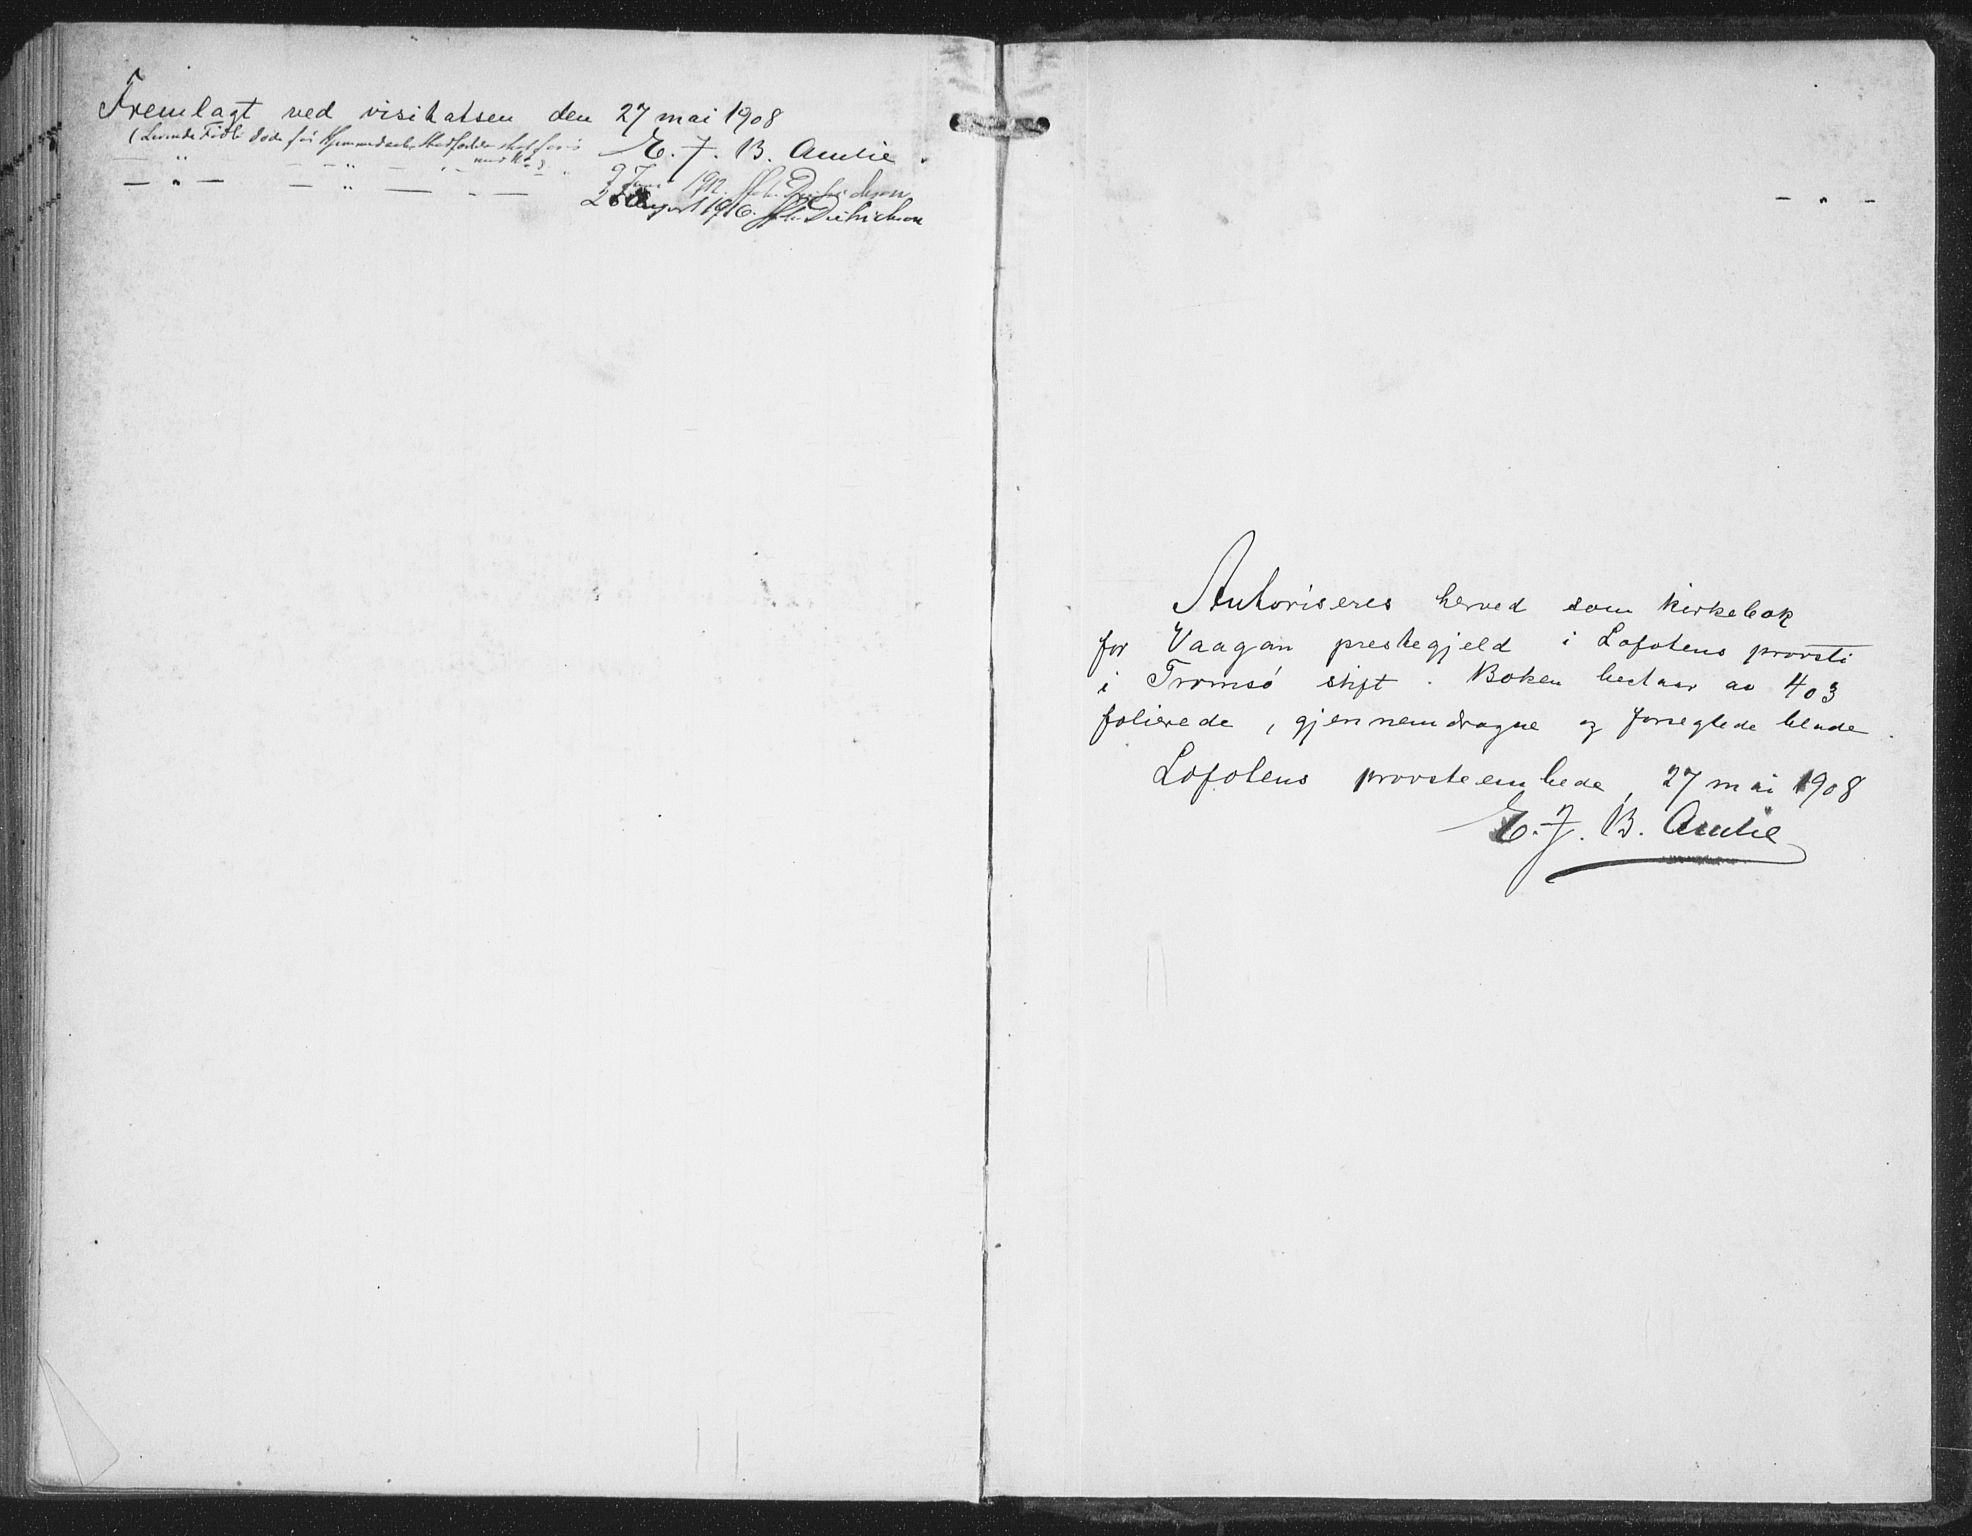 Fremlagt ved visitatsen den 27 mai 1908
E. F. B. Amlie.
— " — — " — — - —
9 Juni 1912. Joh. Dietrichson
26 August 1916. Joh. Dietrichson
— " —
Autoriseres herved som kirkebok
for Vaagan prestegjeld i Lofotens provsti
i Tromsø stift. Boken bestaar av 403
folierede, gjennemdragne og forseglede blade.
Lofotens provsteembede, 27 mai 1908
E. F. B. Amlie